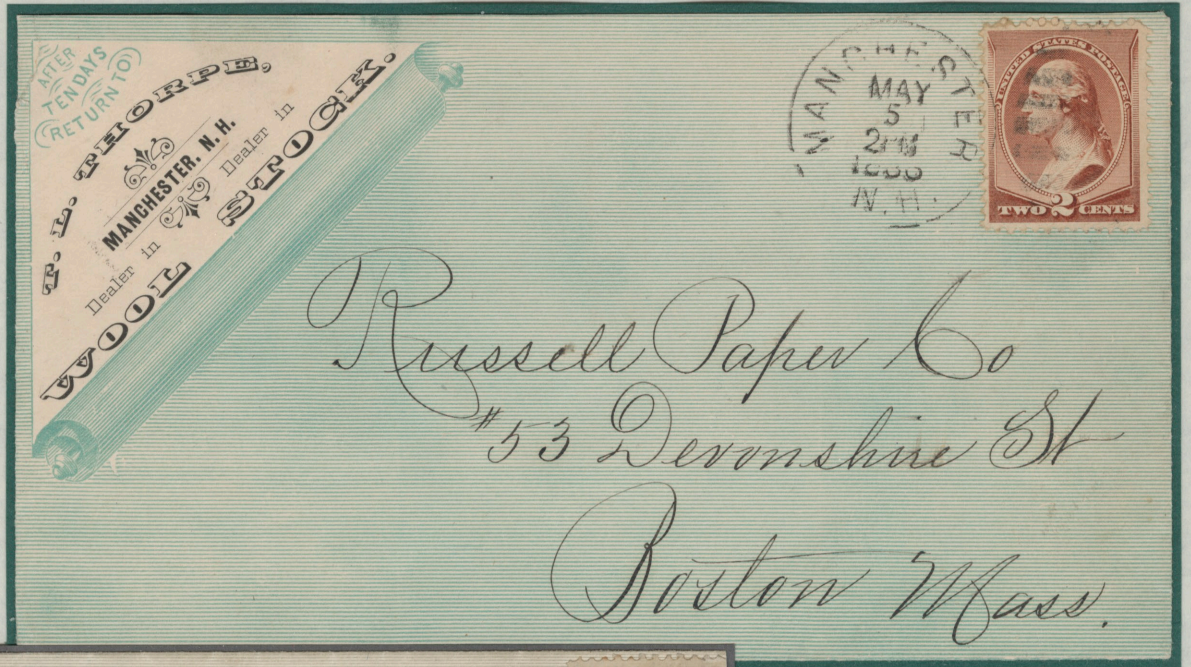 AFTER
TEN DAYS
RETURN TO
T. L. THORPE,
MANCHESTER, N. H.
Dealer in Dealer in
WOOL STOCK.
MANCHESTER
MAY
5
2PM
N.H.
UNITED STATES POSTAGE
TWO 2 CENTS
Russell Paper Co
#53 Devonshire St
Boston Mass.